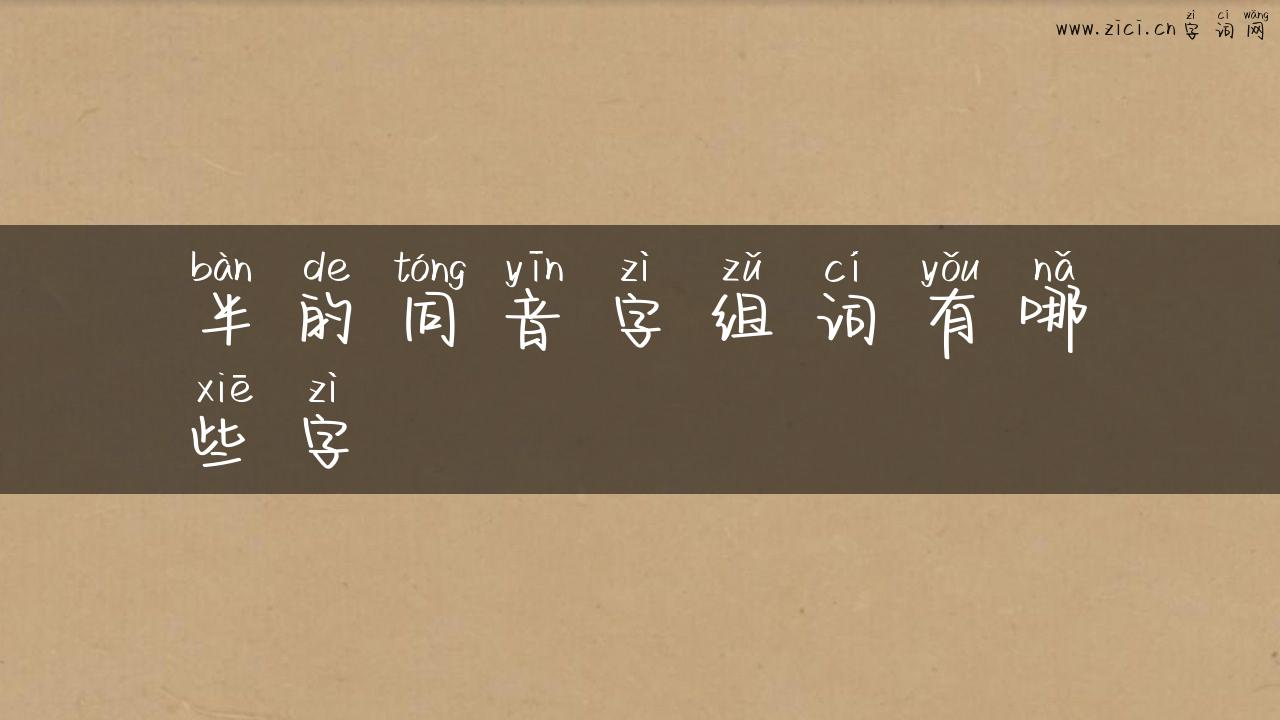 zì cí wǎng
www.zici.cn 字 词 网
bàn de tóng yīn zì zǔ cí yǒu nǎ
半 的 同 音 字 组 词 有 哪
xiē zì
些 字